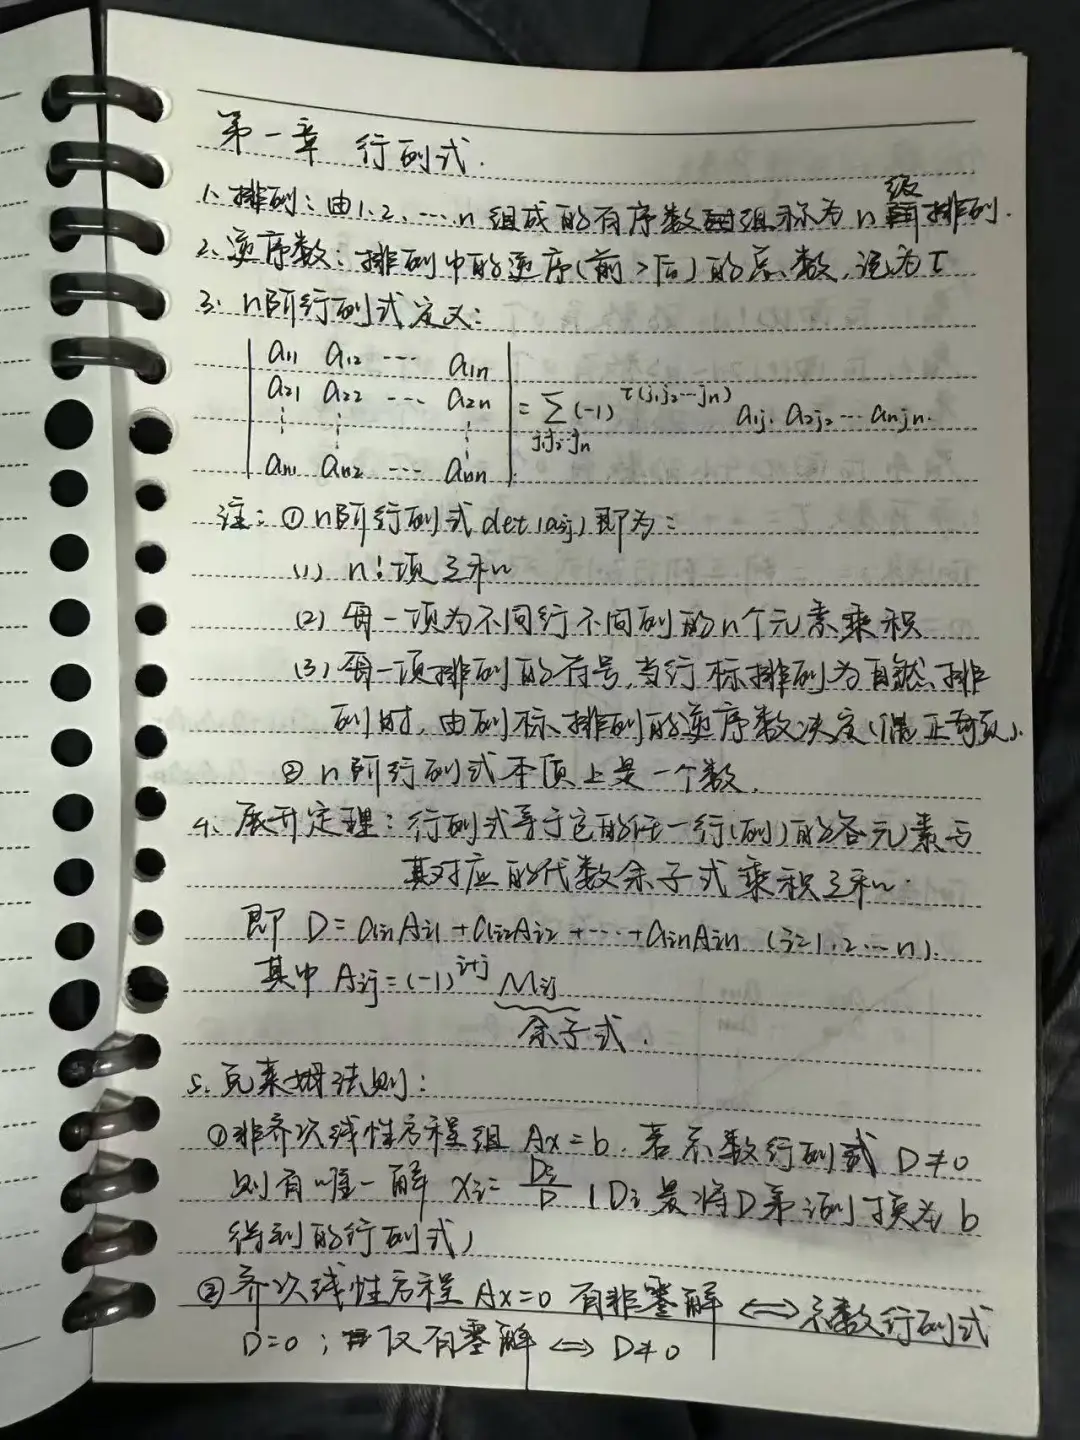 第一章 行列式.
1. 排列：由1.2.…n 组成的有序数组称为 n 级排列.
2. 逆序数：排列中的逆序(前>后)的总数,记为τ
3. n阶行列式定义：
| a11 a12 … a1n |
| a21 a22 … a2n | = ∑(-1)^τ(j1j2…jn) a1j1 a2j2 … anjn.
| ⋮ ⋮ ⋮ | j1j2…jn
| an1 an2 … ann |
注：① n阶行列式 det(aij) 即为：
(1) n!项之和
(2) 每一项为不同行不同列的n个元素乘积
(3) 每一项排列的符号,当行标排列为自然排
列时,由列标排列的逆序数决定(偶正奇负).
② n阶行列式本质上是一个数.
4. 展开定理：行列式等于它的任一行(列)的各元素与
其对应的代数余子式乘积之和.
即 D=ai1Ai1+ai2Ai2+…+ainAin (i=1.2…n).
其中 Aij=(-1)^i+j Mij
余子式.
5. 克莱姆法则：
①非齐次线性方程组 Ax=b. 若系数行列式 D≠0
则有唯一解 xi= Di/D (Di是将D第i列换为 b
得到的行列式)
②齐次线性方程 Ax=0 有非零解 ⟺ 系数行列式
D=0 ; 仅有零解 ⟺ D≠0